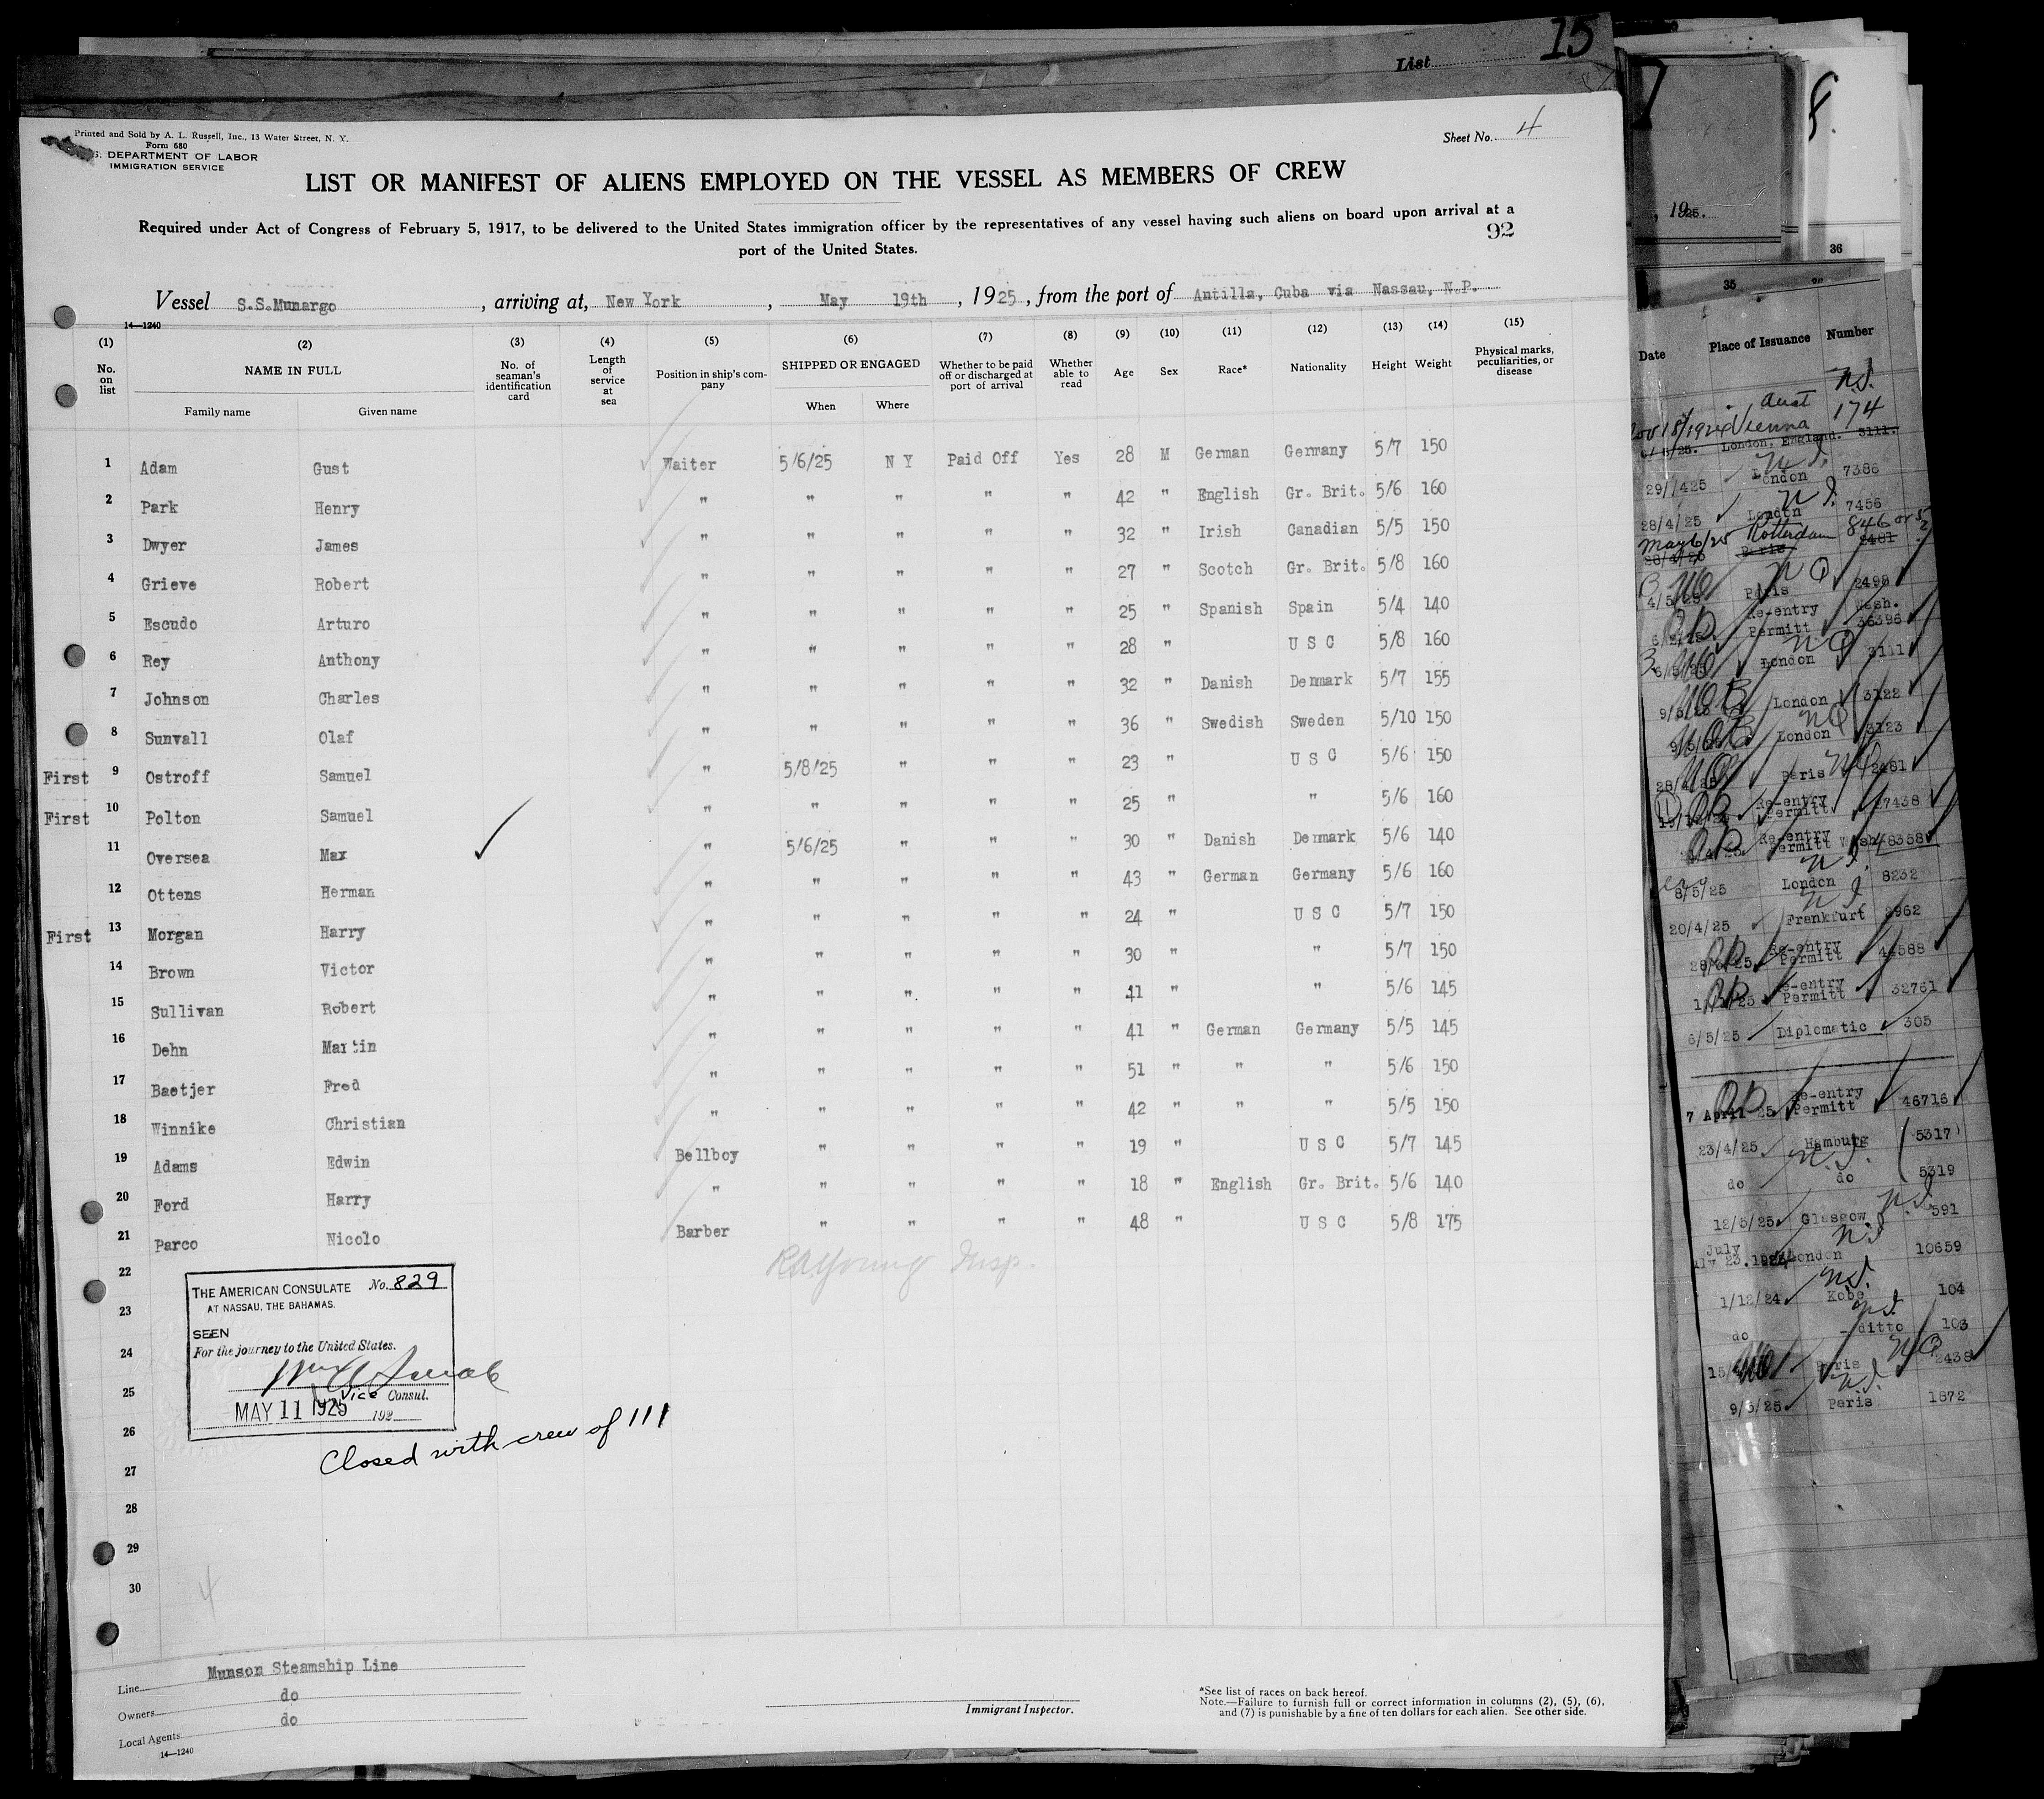 List 15
Printed and Sold by A. L. Russell, Inc., 13 Water Street, N. Y.
Form 680
DEPARTMENT OF LABOR
IMMIGRATION SERVICE
Sheet No. 4
LIST OR MANIFEST OF ALIENS EMPLOYED ON THE VESSEL AS MEMBERS OF CREW
Required under Act of Congress of February 5, 1917, to be delivered to the United States immigration officer by the representatives of any vessel having such aliens on board upon arrival at a
port of the United States.
92
Vessel S.S.Munargo, arriving at, New York, May 19th, 1925, from the port of Antilla, Cuba via Nassau, N.P.
14—1240
(1) (2) (3) (4) (5) (6) (7) (8) (9) (10) (11) (12) (13) (14) (15)
No. on list NAME IN FULL No. of seaman's identification card Length of service at sea Position in ship's company SHIPPED OR ENGAGED Whether to be paid off or discharged at port of arrival Whether able to read Age Sex Race* Nationality Height Weight Physical marks, peculiarities, or disease
Family name Given name When Where
1 Adam Gust Waiter 5/6/25 N Y Paid Off Yes 28 M German Germany 5/7 150
2 Park Henry " " " " " 42 " English Gr. Brit. 5/6 160
3 Dwyer James " " " " " 32 " Irish Canadian 5/5 150
4 Grieve Robert " " " " " 27 " Scotch Gr. Brit. 5/8 160
5 Escudo Arturo " " " " " 25 " Spanish Spain 5/4 140
6 Rey Anthony " " " " " 28 " U S C 5/8 160
7 Johnson Charles " " " " " 32 " Danish Denmark 5/7 155
8 Sunvall Olaf " " " " " 36 " Swedish Sweden 5/10 150
First 9 Ostroff Samuel " 5/8/25 " " " 23 " U S C 5/6 150
First 10 Polton Samuel " " " " " 25 " " 5/6 160
11 Oversea Max " 5/6/25 " " " 30 " Danish Denmark 5/6 140
12 Ottens Herman " " " " " 43 " German Germany 5/6 160
First 13 Morgan Harry " " " " " 24 " U S C 5/7 150
14 Brown Victor " " " " " 30 " " 5/7 150
15 Sullivan Robert " " " " " 41 " " 5/6 145
16 Dehn Martin " " " " " 41 " German Germany 5/5 145
17 Baetjer Fred " " " " " 51 " " " 5/6 150
18 Winnike Christian " " " " " 42 " " " 5/5 150
19 Adams Edwin Bellboy " " " " 19 " U S C 5/7 145
20 Ford Harry " " " " " 18 " English Gr. Brit. 5/6 140
21 Parco Nicolo Barber " " " " 48 " U S C 5/8 175
22
23
24
25
26
27
28
29
30
THE AMERICAN CONSULATE No. 829
AT NASSAU, THE BAHAMAS.
SEEN
For the journey to the United States.
Vice Consul.
MAY 11 1925 192
Closed with crew of 111
4
Line Munson Steamship Line
Owners do
Local Agents do
14—1240
Immigrant Inspector.
*See list of races on back hereof.
Note.—Failure to furnish full or correct information in columns (2), (5), (6),
and (7) is punishable by a fine of ten dollars for each alien. See other side.
8.
, 1925.
36
35
Date Place of Issuance Number
Vienna 174
London, England. 3111.
London 7386
28/4/25 London 7456
May 6/25 Rotterdam 846
Paris 2481
Paris 2498
Re-entry Permitt Wash. 36396
London 3111
London 3122
London 3123
Paris 2481
Re-entry Permitt 27438
Re-entry Permitt Wash 48358
8/5/25 London 8232
20/4/25 Frankfurt 2962
Re-entry Permitt 44588
Re-entry Permitt 32761
6/5/25 Diplomatic 305
7 April 25 Re-entry Permitt 46716
23/4/25 Hamburg 5317
do do 5319
12/5/25 Glasgow 591
July 23.1924 London 10659
1/12/24 Kobe 104
do ditto 103
Paris 2438
9/5/25 Paris 1872